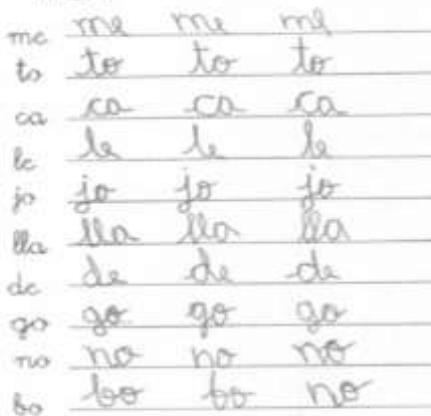 me me me me
to to to to
ca ca ca ca
le le le le
jo jo jo jo
lla lla lla lla
de de de de
go go go go
no no no no
bo bo bo no